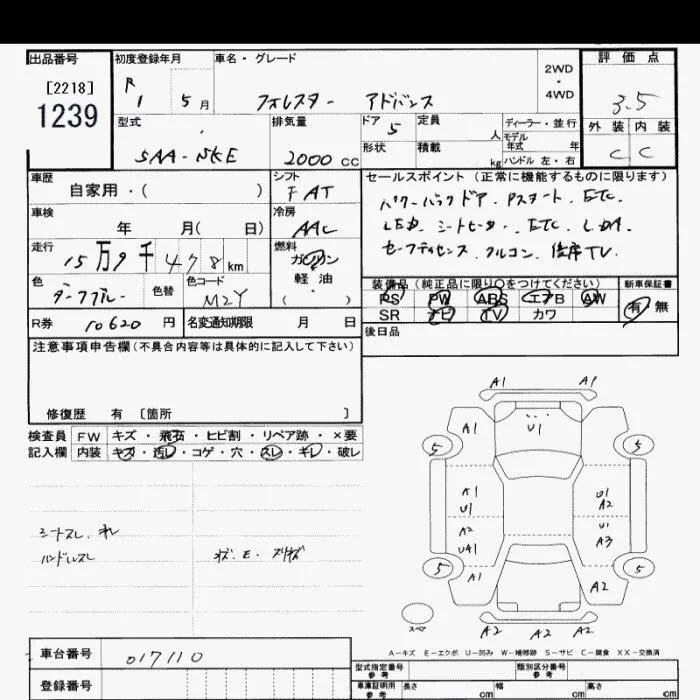 出品番号 初度登録年月 車名・グレード 2WD・4WD 評価点
[2218]
1239
R1 5月 フォレスター アドバンス 3.5
型式 排気量 ドア 定員 ディーラー・並行 外装 内装
5AA-SKE 2000 CC 5 人 モデル年式 年 C C
形状 積載 kg ハンドル 左・右
車歴 シフト セールスポイント(正常に機能するものに限ります)
自家用・( ) F AT パワーバックドア . Pスタート . ETC.
車検 冷房 LED . シートヒーター . ETC . LDA.
年 月( 日) AAC
走行 燃料 セーフティセンス . クルコン . TV.
15万9千478km ガソリン
軽・油
・( )
色 色替 色コード 装備品(純正品に限り○をつけてください) 新車保証書
ダークブルー M2Y PS PW ABS エアB AW 有・無
SR ナビ TV カワ
R券 10620円 名変通知期限 月 日 後日品
注意事項申告欄(不具合内容等は具体的に記入して下さい)
修復歴 有 〔箇所 〕
検査員 FW キズ・飛石・ヒビ割・リペア跡・×要
記入欄 内装 キズ・汚レ・コゲ・穴・スレ・ギレ・破レ
A1 A1
A1 U1
5 5
A1 U1
U1 A2
A2 U1
UA1 A3
5 A1 A2 5
スペア A2 A2 A2
シートスレ . キレ
ハンドルスレ
A-キズ E-エクボ U-凹み W-補修跡 S-サビ C-腐食 XX-交換済
車台番号 017110
登録番号
型式指定番号 参考 類別区分番号 参考
車庫証明用 参考 長さ cm 幅 cm 高さ cm